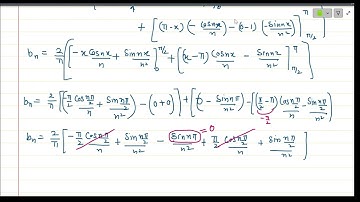 + [(π-x)(-cosnx/n) - (-1)(-sinnx/n²)]^π_π/2
bn = 2/π [-x cosnx/n + sinnx/n²]^π/2_0 + [(x-π) cosnx/n - sinnx/n²]^π_π/2
bn = 2/π [(-π/2 cos nπ/2 /n + sin nπ/2 /n²) - (0+0)] + [0 - sin nπ/n² - [(π/2 - π) cos nπ/2 /n - sin nπ/2 /n²]
-π/2
bn = 2/π [-π/2 cos nπ/2 /n + sin nπ/2 /n² - sin nπ/n² = 0 + π/2 cos nπ/2 /n + sin nπ/2 /n²]